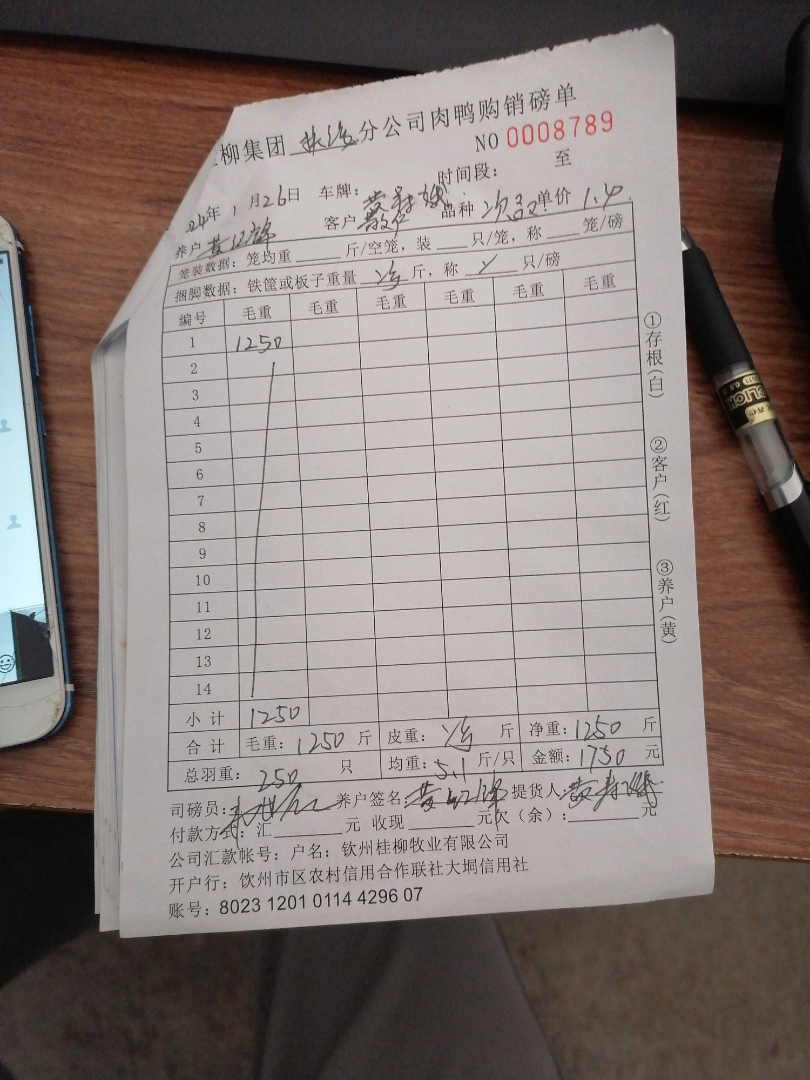 柳集团 分公司肉鸭购销磅单
NO 0008789
时间段： 至
24年 1月26日 车牌：
养户 黄 锦 客户 散户 黄 品种 次品 单价 1.4
笼装数据：笼均重 斤/空笼，装 只/笼，称 笼/磅
捆脚数据：铁筐或板子重量 斤，称 只/磅
编号 毛重 毛重 毛重 毛重 毛重 毛重
1 1250
2
3
4
5
6
7
8
9
10
11
12
13
14
小计 1250
合计 毛重：1250 斤 皮重： 斤 净重：1250 斤
总羽重：250 只 均重：5.1 斤/只 金额：1750 元
司磅员： 养户签名：黄 锦 提货人：黄
付款方式：汇 元 收现 元欠（余）： 元
公司汇款帐号：户名：钦州桂柳牧业有限公司
开户行：钦州市区农村信用合作联社大垌信用社
账号：8023 1201 0114 4296 07
①存根（白）
②客户（红）
③养户（黄）